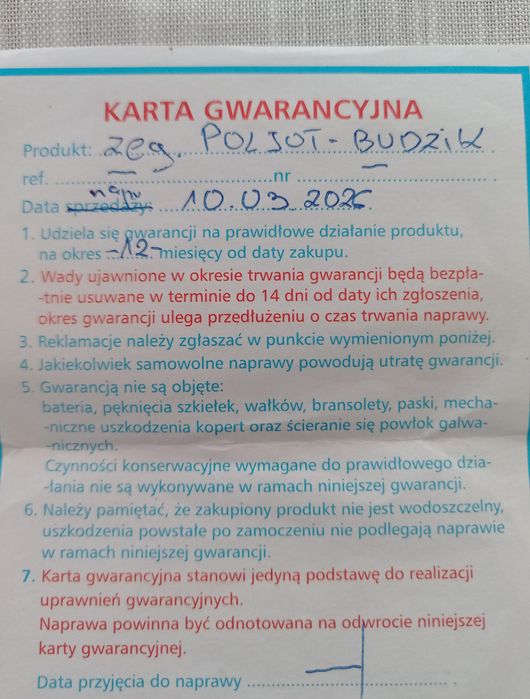 KARTA GWARANCYJNA
Produkt: zeg. POLJOT - BUDZIK
ref. nr
napr
Data sprzedaży: 10.03.2026
1. Udziela się gwarancji na prawidłowe działanie produktu,
na okres -12- miesięcy od daty zakupu.
2. Wady ujawnione w okresie trwania gwarancji będą bezpła-
-tnie usuwane w terminie do 14 dni od daty ich zgłoszenia,
okres gwarancji ulega przedłużeniu o czas trwania naprawy.
3. Reklamacje należy zgłaszać w punkcie wymienionym poniżej.
4. Jakiekolwiek samowolne naprawy powodują utratę gwarancji.
5. Gwarancją nie są objęte:
bateria, pęknięcia szkiełek, wałków, bransolety, paski, mecha-
-niczne uszkodzenia kopert oraz ścieranie się powłok galwa-
-nicznych.
Czynności konserwacyjne wymagane do prawidłowego dzia-
-łania nie są wykonywane w ramach niniejszej gwarancji.
6. Należy pamiętać, że zakupiony produkt nie jest wodoszczelny,
uszkodzenia powstałe po zamoczeniu nie podlegają naprawie
w ramach niniejszej gwarancji.
7. Karta gwarancyjna stanowi jedyną podstawę do realizacji
uprawnień gwarancyjnych.
Naprawa powinna być odnotowana na odwrocie niniejszej
karty gwarancyjnej.
Data przyjęcia do naprawy